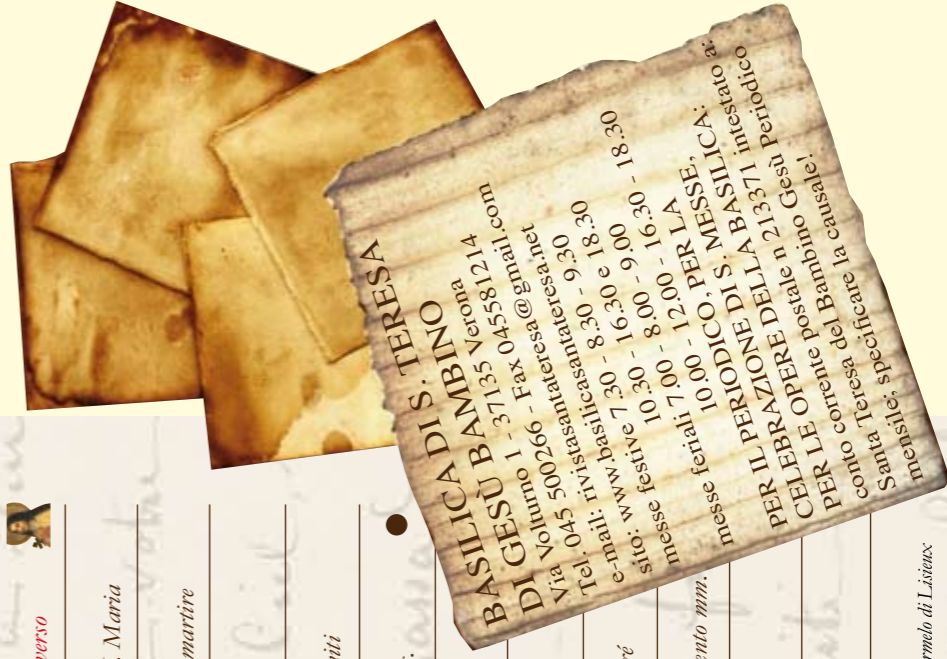 BASILICA DI S. TERESA
DI GESÙ BAMBINO
Via Volturno 1 - 37135 Verona
Tel. 045 500266 - Fax 045581214
e-mail: rivistasantateresa@gmail.com
sito: www.basilicasantateresa.net
messe festive 7.30 - 8.30 - 9.30
10.30 - 16.30 e 18.30
messe feriali 7.00 - 8.00 - 9.00
10.00 - 12.00 - 16.30 - 18.30
PER IL PERIODICO, PER LA
CELEBRAZIONE DI S. MESSE,
PER LE OPERE DELLA BASILICA:
conto corrente postale n. 213371 intestato a:
Santa Teresa del Bambino Gesù Periodico
mensile; specificare la causale!
verso
Maria
martire
niti
ento mm.
rmelo di Lisieux